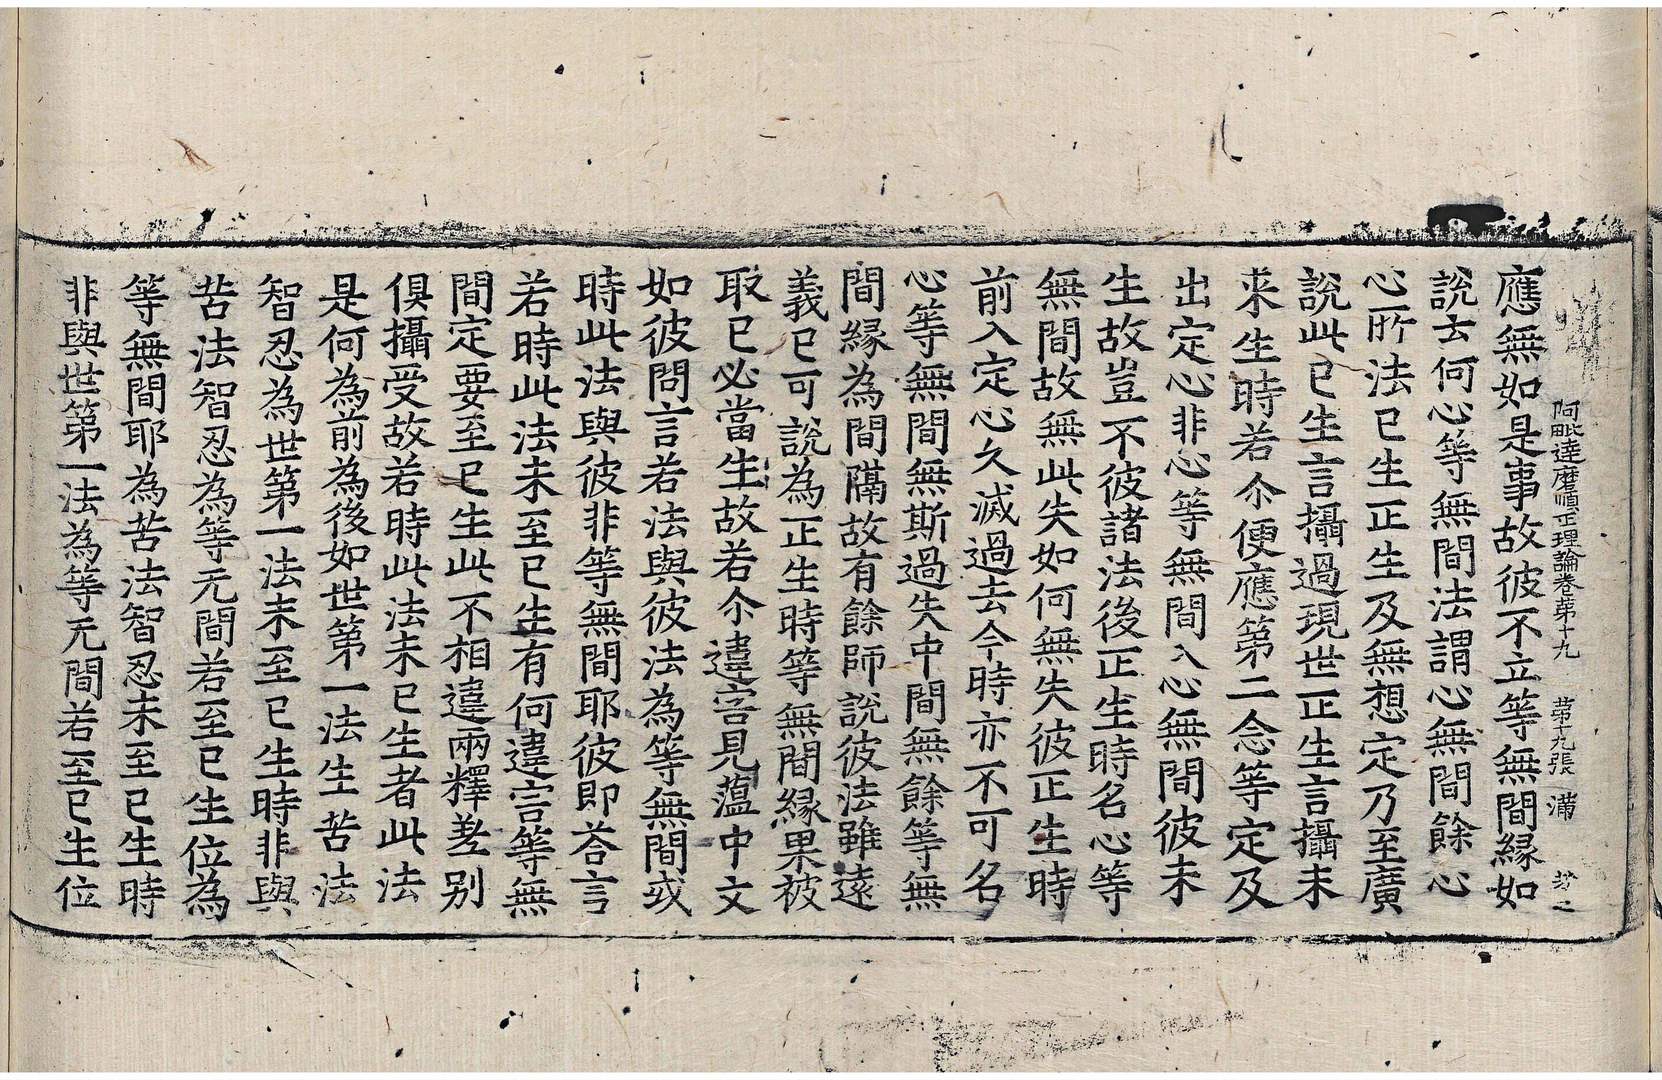 阿毗達磨順正理論卷苐十九　苐十九張　滿
應無如是事故彼不立等無間緣如
說去何心等無間法謂心無間餘心
心所法已生正生及無想定乃至廣
說此已生言攝過現世正生言攝未
来生時若尒便應第二念等定及
出定心非心等無間入心無間彼未
生故豈不彼諸法後正生時名心等
無間故無此失如何無失彼正生時
前入定心久滅過去今時亦不可名
心等無間無斯過失中間無餘等無
間緣為間隔故有餘師說彼法雖遠
義已可說為正生時等無間緣果被
取已必當生故若尒違害見薀中文
如彼問言若法與彼法為等無間或
時此法與彼非等無間耶彼即荅言
若時此法未至已生有何違害等無
間定要至已生此不相違兩釋差别
俱攝受故若時此法未已生者此法
是何為前為後如世第一法生苦法
智忍為世第一法未至已生時非與
苦法智忍為等无間若至已生位為
等無間耶為苦法智忍未至已生時
非與世第一法為等无間若至已生位